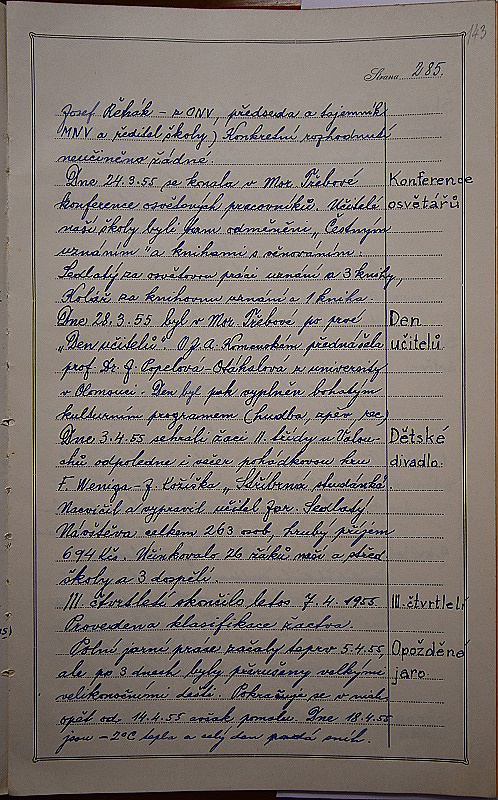 143
Strana 285.
Josef Řehák – z ONV, předseda a tajemník
MNV a ředitel školy) Konkretní rozhodnutí
neučiněno žádné.
Dne 24.3.55 se konala v Mor. Třebové
Konference
konference osvětových pracovníků. Učitelé
osvětářů
naší školy byli tam odměněni „Čestným
uznáním" a knihami s věnováním:
Sedlatý za osvětovou práci uznání a 3 knihy,
Kolář za knihovnu uznání a 1 kniha.
Dne 28.3.55 byl v Mor. Třebové po prvé
Den
„Den učitelů". O J. A. Komenském přednášela
učitelů
prof. Dr. J. Popelová-Otáhalová z university
v Olomouci. Den byl pak vyplněn bohatým
kulturním programem (hudba, zpěv, rec)
Dne 3.4.55 sehráli žáci II. třídy u Valou-
Dětské
chů odpoledne i večer pohádkovou hru
divadlo
F. Weniga - J. Kožíška „Stříbrná studánka".
Nacvičil a vypravil učitel Jar. Sedlatý.
Návštěva celkem 263 osob, hrubý příjem
694 Kčs. Účinkovalo 26 žáků naší a střed
školy a 3 dospělí.
III. čtvrtletí skončilo letos 7.4.1955
III. čtvrtletí
Provedena klasifikace žactva.
Polní jarní práce začaly teprv 5.4.55,
Opožděné
ale po 3 dnech byly přerušeny velkými
jaro
velikonočními dešti. Pokračuje se v nich
opět od 14.4.55 avšak pomalu. Dne 18.4.55
jsou –2°C tepla a celý den padá sníh.